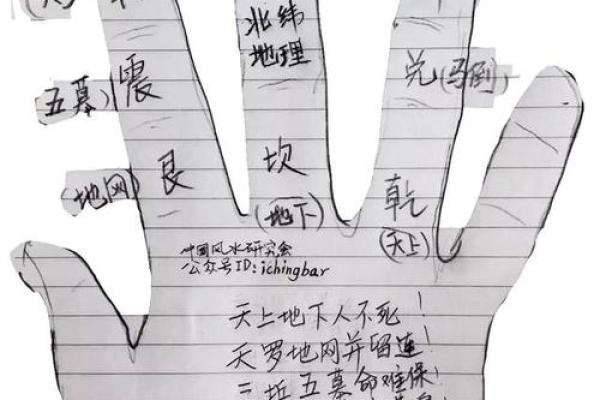 北纬
地理
兑(马倒)
五墓)震
(地网)艮
坎
(地下)
乾
(天上)
中国风水研究会
公众号ID:ichingbar
天上地下人不死!
天罗地网并留连!
三丘五墓命难保!